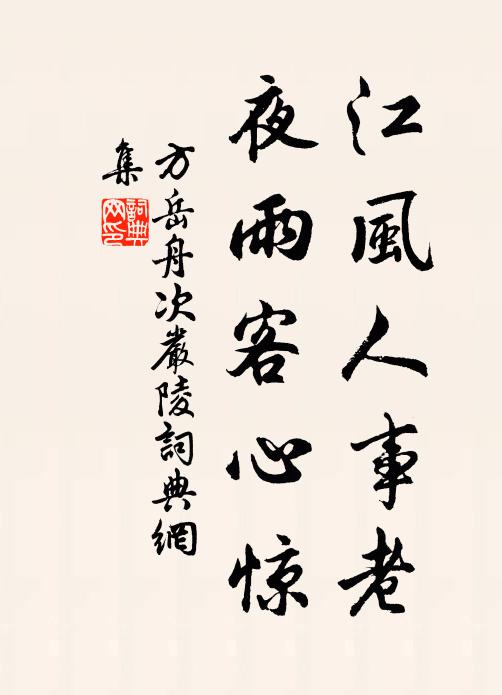 江風人事老
夜雨客心惊
方岳舟次嚴陵詞典網
集
詞典
网印